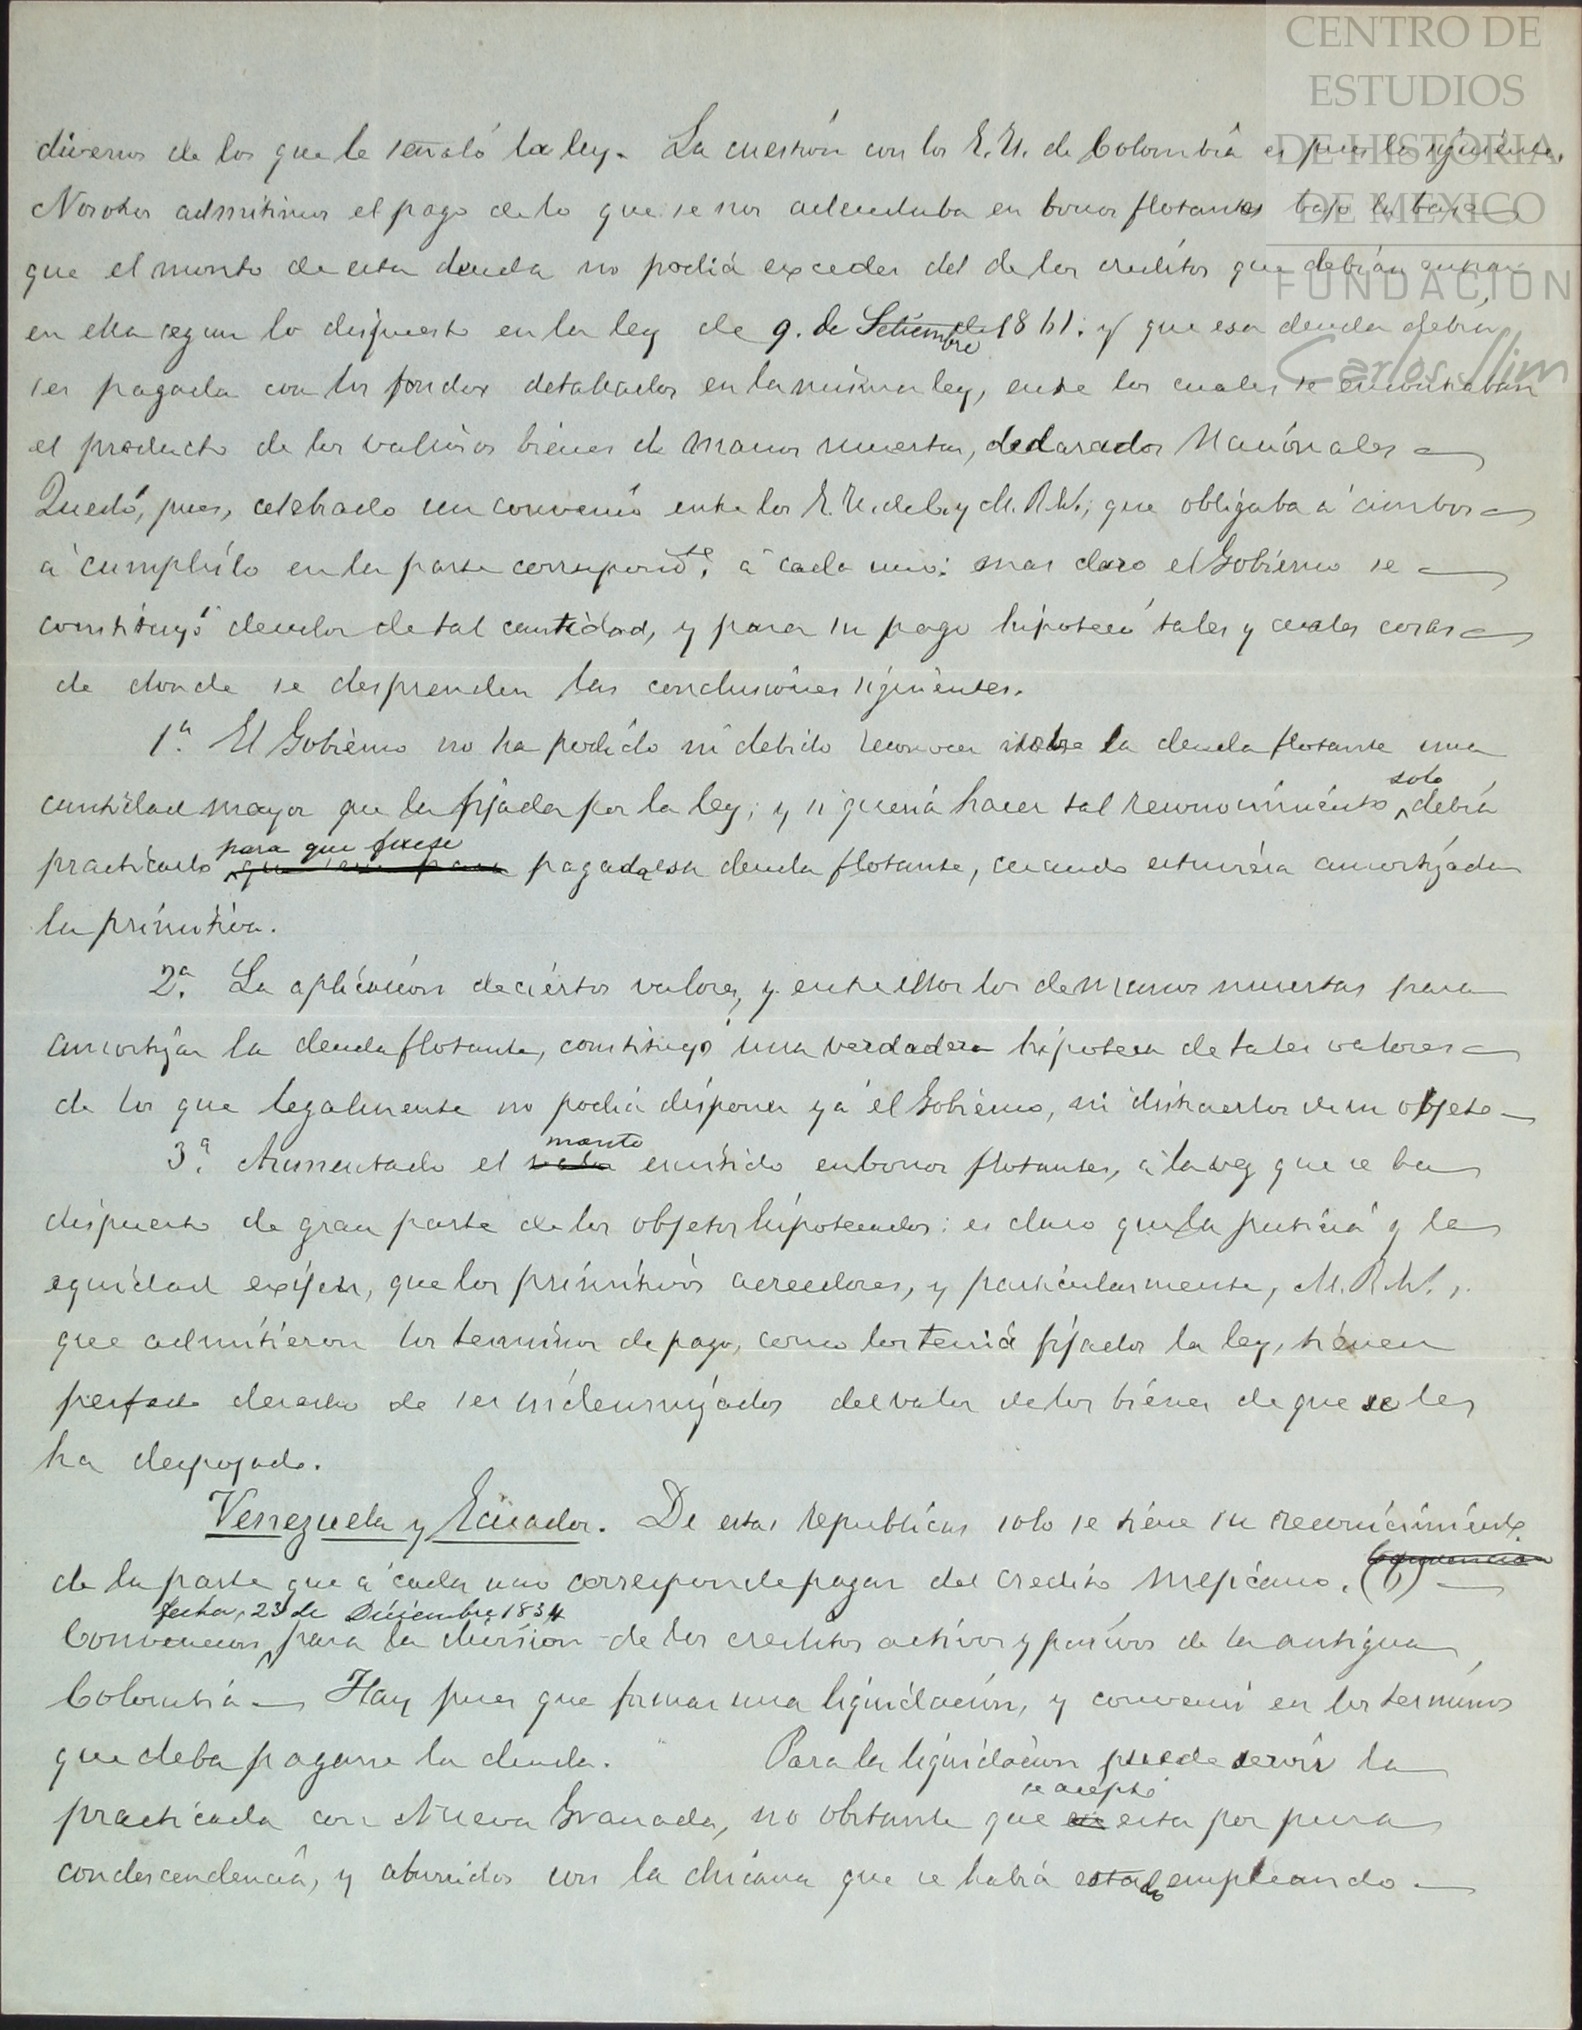 CENTRO DE
ESTUDIOS
DE HISTORIA
DE MEXICO
FUNDACIÓN
Carlos Slim
diversos de los que le señaló la ley. La cuestión con los E. U. de Colombia es pues la siguiente.
Nosotros admitimos el pago de lo que se nos adeudaba en bonos flotantes bajo la base
que el monto de esta deuda no podía exceder del de los creditos que debían entrar
en ella segun lo dispuesto en la ley de 9. de Setiembre de 1861. y que esa deuda debía
ser pagada con los fondos detallados en la misma ley, entre los cuales se encontraban
el producto de los valiosos bienes de manos muertas, declarados Nacionales
Quedó, pues, celebrado un convenio entre los E. U. de C. y M. R. W.; que obligaba a ambos
a cumplirlo en la parte correspondte. a cada uno: mas claro el Gobierno se
constituyó deudor de tal cantidad, y para su pago hipotecó tales y cuales cosas
de donde se desprenden las conclusiones siguientes.
1a. El Gobierno no ha podido ni debido reconocer sobre la deuda flotante una
cantidad mayor que la fijada por la ley; y si quería hacer tal reconocimiento solo debía
practicarlo para que fuese pagada esa deuda flotante, cuando estuviera amortizada
la primitiva.
2a. La aplicación de ciertos valores, y entre ellos los de manos muertas para
amortizar la deuda flotante, constituyó una verdadera hipoteca de tales valores
de los que legalmente no podía disponer ya el Gobierno, ni distraerlos de su objeto
3a. Aumentado el monto emitido en bonos flotantes, a la vez que se ha
dispuesto de gran parte de los objetos hipotecados: es claro que la justicia y la
equidad exijen, que los primitivos acreedores, y particularmente, M. R. W.,
que admitieron los terminos de pago, como los tenía fijados la ley, tienen
perfecto derecho de ser indemnizados del valor de los bienes de que se les
ha despojado.
Venezuela y Ecuador. De estas republicas solo se tiene su reconocimiento
de la parte que a cada uno corresponde pagar del credito mejicano. (1)
Convencion fecha, 23 de Diciembre 1834 para la division de los creditos activos y pasivos de la antigua
Colombia Hay pues que formar una liquidación, y convenir en los terminos
que deba pagarse la deuda. Para la liquidación puede servir la
practicada con Nueva Granada, no obstante que se aceptó esta por pura
condescendencia, y aburridos con la chicana que se había estado empleando.